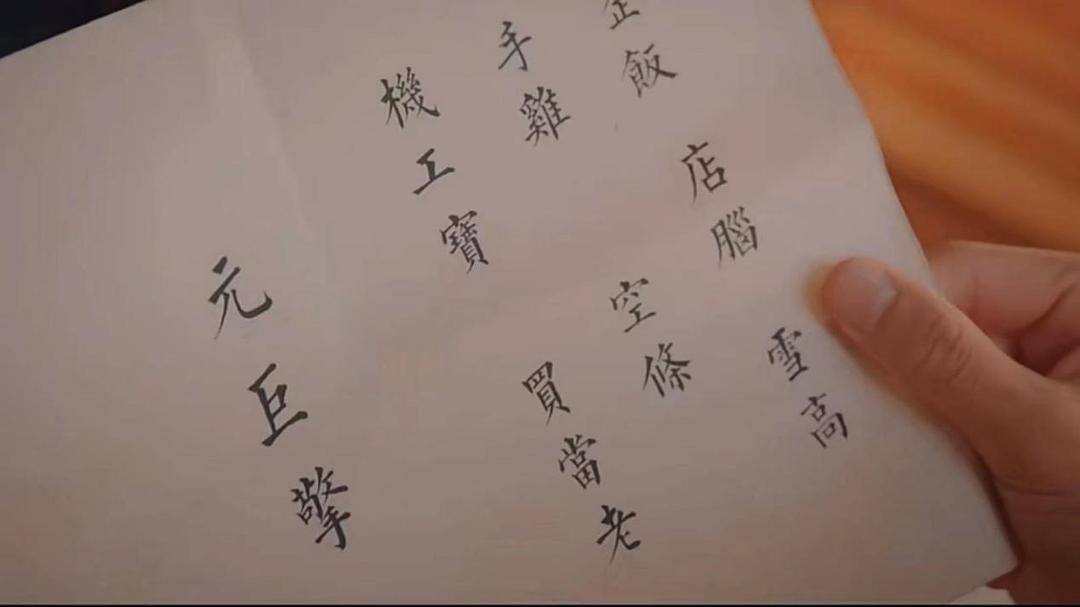 飯 店腦 雪高
手雞 空條
機工寶 買當老
元巨擎